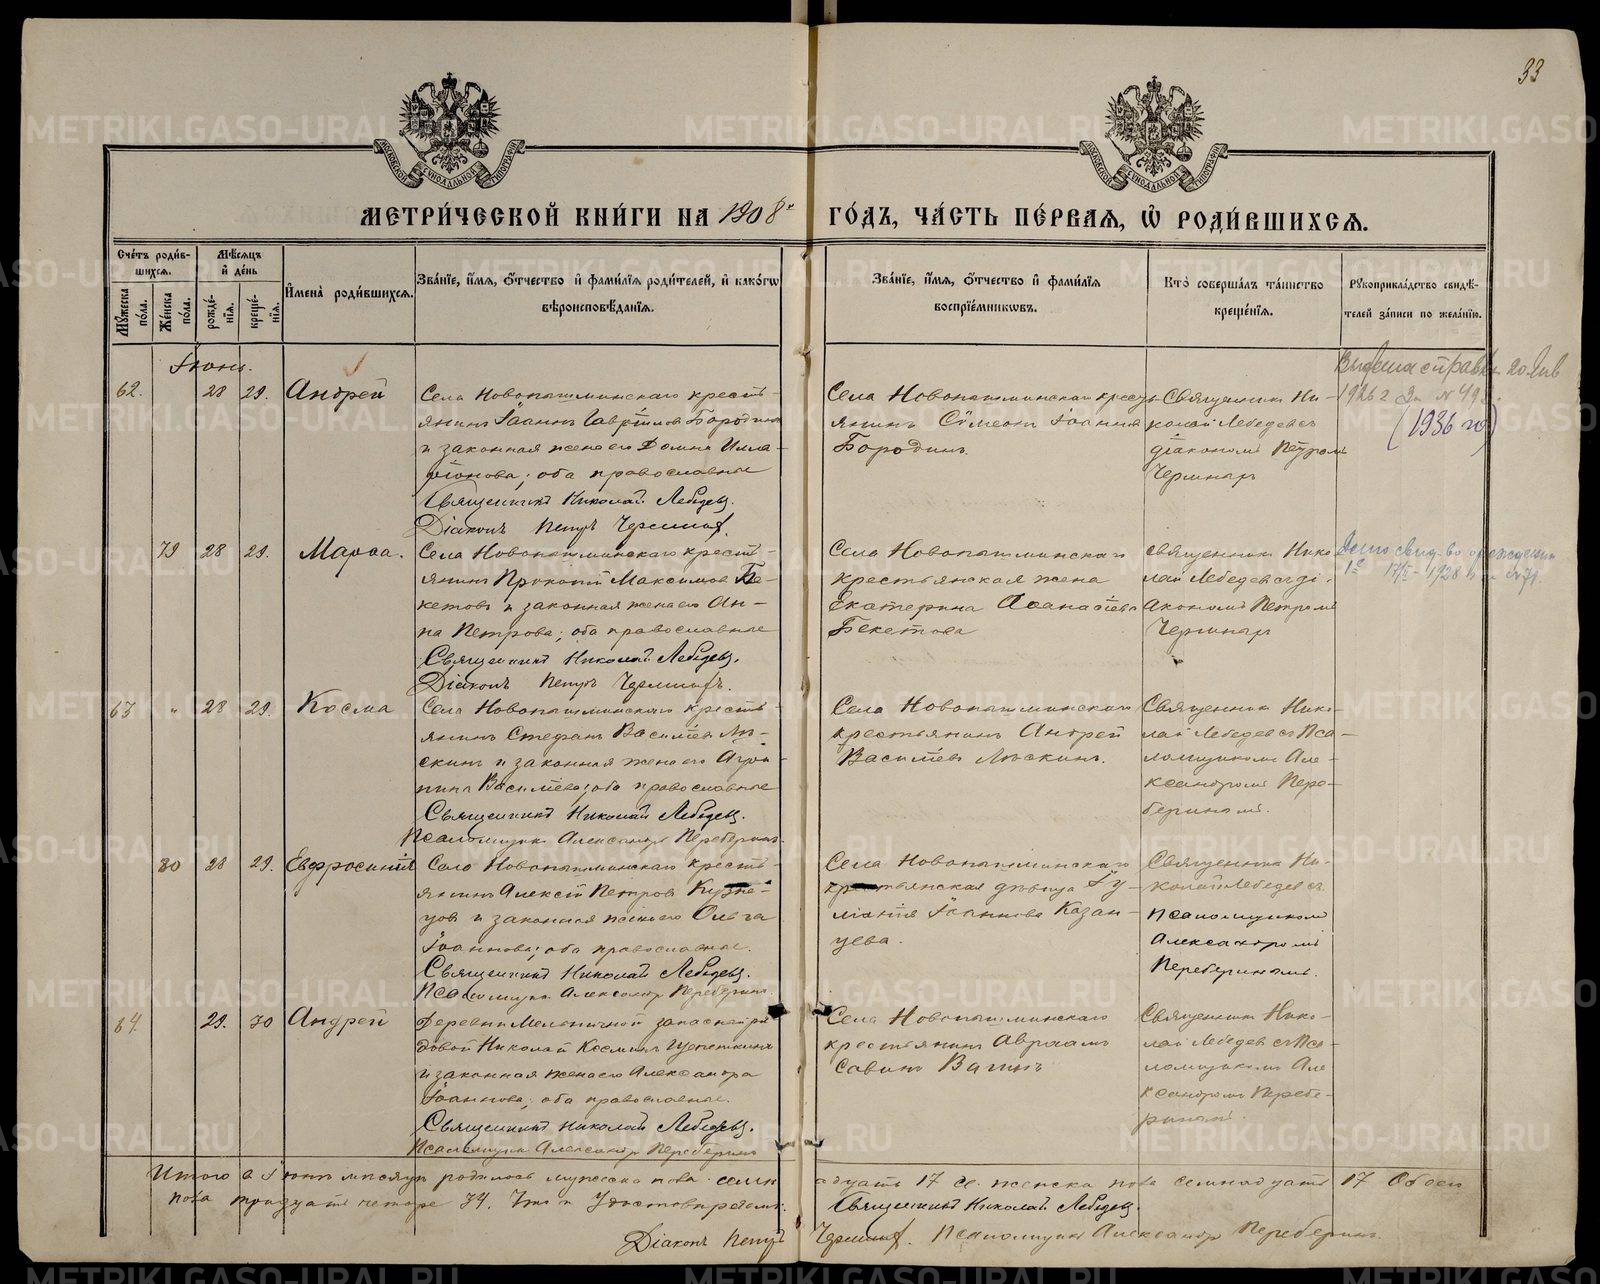 33
МЕТРИ́ЧЕСКОЙ КНИ́ГИ НА 1908й ГО́ДЪ, ЧА́СТЬ ПЕ́РВАЯ, Ѽ РОДИ́ВШИХСЯ.
Счетъ роди́вшихся.
Му́жеска по́ла.
Же́нска по́ла.
Мѣ́сяцъ и де́нь
рожде́нїя.
креще́нїя.
Имена̀ роди́вшихся.
Зва́нїе, и́мя, ѻ́тчество и фами́лїя роди́телей, и како́гѡ
вѣроисповѣ́данїя.
Зва́нїе, и́мя, ѻ́тчество и фами́лїя
воспрїе́мникѡвъ.
Кто̀ соверша́лъ та́инство
креще́нїя.
Рꙋкоприкла́дство свидѣ́-
телей за́писи по жела́нїю.
Іюнь.
62. 28 29. Андрей
Села Новопышминскаго кресть-
янинъ Іоаннъ Гаврїиловъ Бородинъ
и законная жена его Домна Илла-
рїонова; оба православные
Священникъ Николай Лебедевъ.
Діаконъ Петръ Черемный.
Села Новопышминскаго кресть-
янинъ Сѵмеонъ Іоанновъ
Бородинъ.
Священникъ Ни-
колай Лебедевъ съ
діакономъ Петромъ
Выдана справка
1926 г За № 493
(1936 г)
79 28 29. Марѳа.
Села Новопышминскаго кресть-
янинъ Прокопій Максимовъ Бе-
кетовъ и законная жена его Ан-
на Петрова; оба православные
Священникъ Николай Лебедевъ.
Діаконъ Петръ
Села Новопышминскаго
крестьянская жена
Екатерина Аѳанасіева
Бекетова
Священникъ Нико-
лай Лебедевъ съ ді-
акономъ Петромъ
1928
63 " 28 29. Косма
Села Новопышминскаго кресть-
янинъ Стефанъ Васильевъ Лѣ-
скинъ и законная жена его Агри-
пина Васильева; оба православные
Священникъ Николай Лебедевъ.
Псаломщикъ Александръ Переберинъ.
Села Новопышминскаго
крестьянинъ Андрей
Васильевъ Лѣскинъ.
Священникъ Нико-
лай Лебедевъ съ Пса-
ломщикомъ Але-
ксандромъ Пере-
беринымъ.
80 28 29. Евфросинія
Села Новопышминскаго кресть-
янинъ Алексій Петровъ Кузне-
цовъ и законная жена его Ольга
Іоаннова; оба православные.
Священникъ Николай Лебедевъ.
Псаломщикъ Александръ Переберинъ.
Села Новопышминскаго
крестьянская дѣвица Іу-
ліанія Іоаннова Казан-
цева.
Священникъ Ни-
колай Лебедевъ съ
псаломщикомъ
Александромъ
Переберинымъ.
64. 29. 30 Андрей
Деревни Мельничной запасной ря-
довой Николай Косминъ Щепеткинъ
и законная жена его Александра
Іоаннова; оба православные.
Священникъ Николай Лебедевъ.
Псаломщикъ Александръ Переберинъ
Села Новопышминскаго
крестьянинъ Авраамъ
Савинъ Вагинъ
Священникъ Нико-
лай Лебедевъ съ Пса-
ломщикомъ Але
ксандромъ Перебе-
ринымъ.
Итого въ Іюнѣ мѣсяцѣ родилось мужеска пола семнадцать 17 и женска пола семнадцать 17 Обоего
пола тридцать четыре 34. Что и удостовѣряемъ: Священникъ Николай Лебедевъ.
Діаконъ Петръ Псаломщикъ Александръ Переберинъ.
METRIKI.GASO-URAL.RU